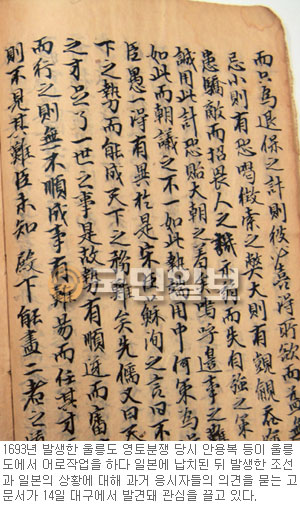 而只爲退保之計則彼必喜得所欲而益
忌小則有恐喝徵索之弊大則有覬覦吞
患驕敵而招畏人之辭示弱而失自强之策
誠用此計恐貽大朝之若嗚呼邊事之
如此而朝議之不一如此執兩用中何策爲
臣愚有異於是宋臣蘇洵之言曰不
下之勢而能成天下之務矣先儒又曰天
之才足了一世之事是故執有順逆而審
而行之則無不順成事有難易而任其才
則不見其難臣未知 殿下能盡二者之
국민일보
1693년 발생한 울릉도 영토분쟁 당시 안용복 등이 울릉
도에서 어로작업을 하다 일본에 납치된 뒤 발생한 조선
과 일본의 상황에 대해 과거 응시자들의 의견을 묻는 고
문서가 14일 대구에서 발견돼 관심을 끌고 있다.